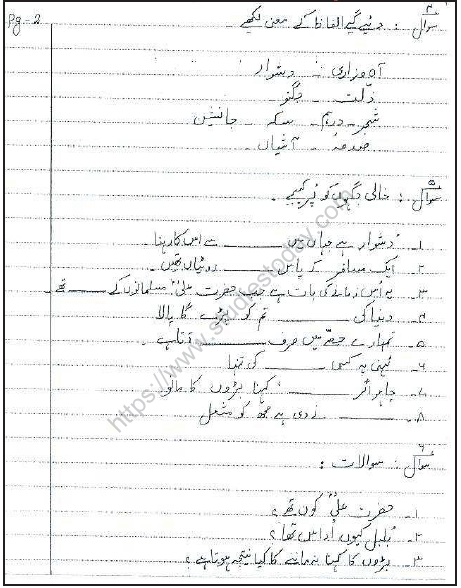 Pg-2
سوال ۴: دیئے گئے الفاظ کے معنی لکھئے۔
آہ وزاری - دشوار
ذلت - جگنو
شجر - درہم - سکہ - جانشین
صدمہ - آشیاں۔
سوال ۵: خالی جگہوں کو پُر کیجیے۔
۱۔ دُشوار ہے جہاں میں ______ سے اس کا رہنا۔
۲۔ ایک مسافر کے پاس ______ روٹیاں تھیں۔
۳۔ یہ اُس زمانے کی بات ہے جب حضرت علیؓ مسلمانوں کے ______ تھے۔
۴۔ دنیا کی ______ تم کو پڑے گا پالا
۵۔ تمہارے حصّے میں صرف ______ آتا ہے۔
۶۔ ٹہنی پہ کسی ______ کی تنہا
۷۔ چاہو اگر ______، کہنا بڑوں کا مانو
۸۔ ______ نے دی ہے مجھ کو مشعل
سوال ۶: سوالات:
۱۔ حضرت علیؓ کون تھے؟
۲۔ بُلبل کیوں اُداس تھا؟
۳۔ بڑوں کا کہنا نہ ماننے کا کیا نتیجہ ہوتا ہے؟
https://www.studiestoday.com